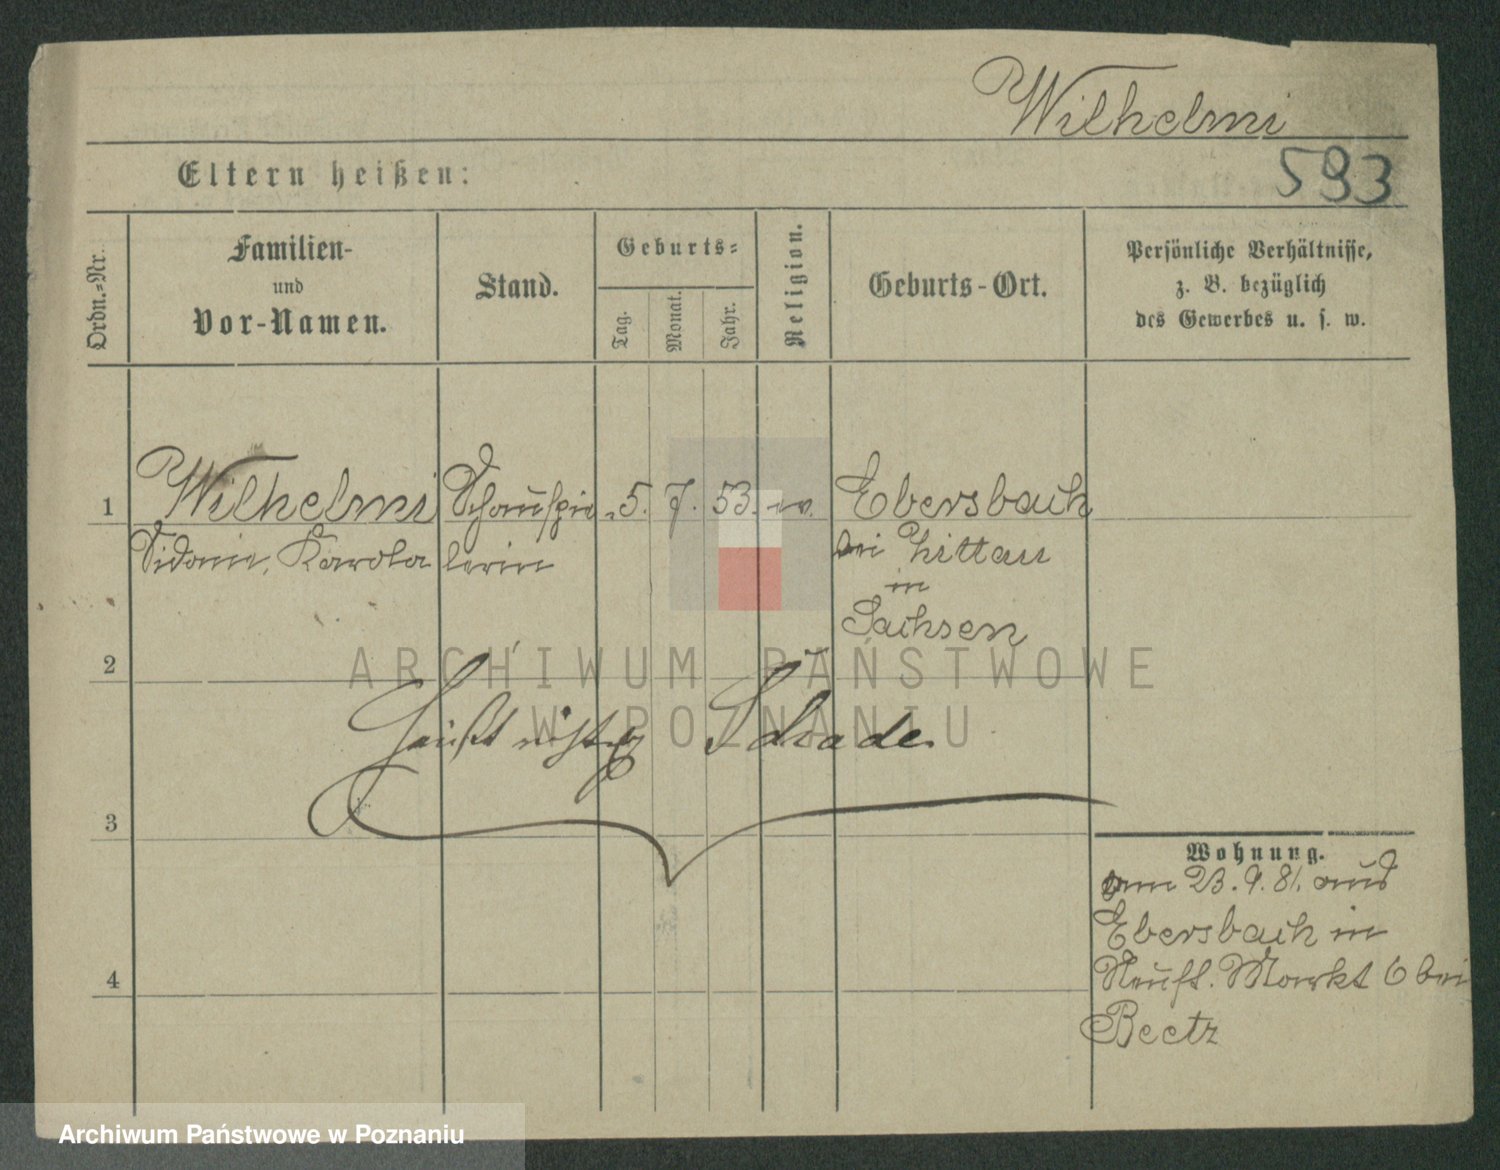 Wilhelmi
593
Eltern heißen:
Ordn.-Nr.
Familien-
und
Vor-Namen.
Stand.
Geburts-
Tag.
Monat.
Jahr.
Religion.
Geburts-Ort.
Persönliche Verhältnisse,
z. B. bezüglich
des Gewerbes u. s. w.
1 Wilhelmi Schauspie- 5. 7. 53. ev. Ebersbach
Sidonie, Karola lerin bei Zittau
in
Sachsen
2
ARCHIWUM PAŃSTWOWE
W POZNANIU
heißt richtig Schade.
3
Wohnung.
am 23. 9. 81. aus
Ebersbach in
Neust. Markt 6 bei
4
Beetz
Archiwum Państwowe w Poznaniu